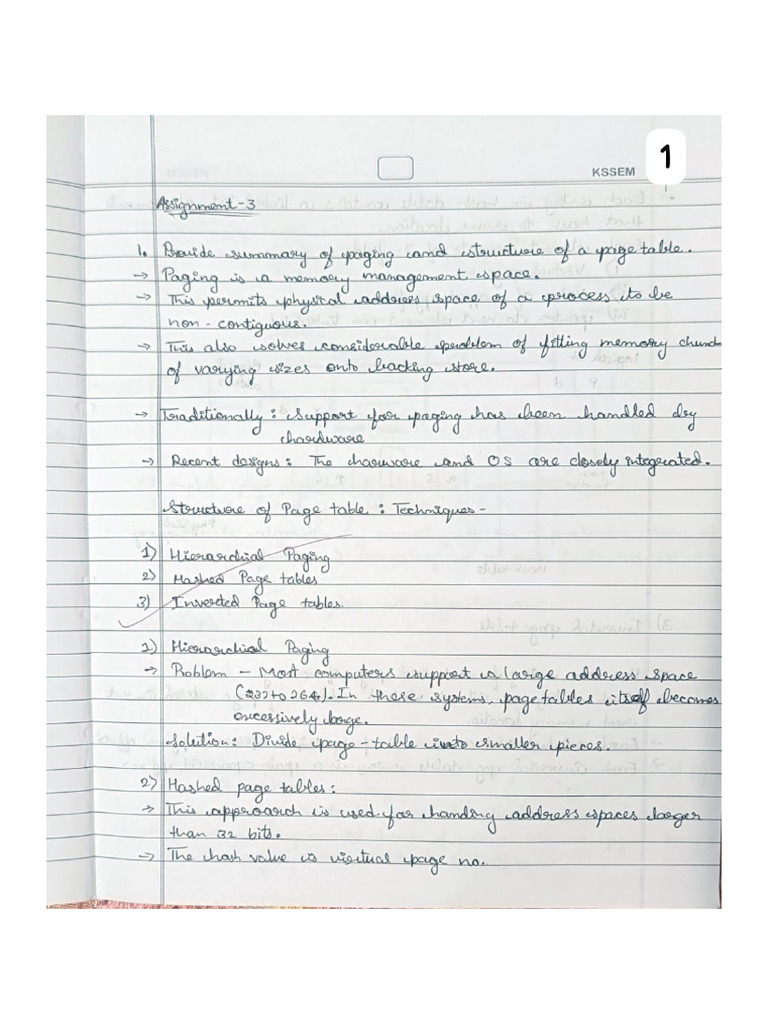 1
KSSEM
Assignment-3
1. Provide summary of paging and structure of a page table.
→ Paging is a memory management space.
→ This permits physical address space of a process to be
non-contiguous.
→ This also solves considerable problem of fitting memory chunck
of varying sizes onto backing store.
→ Traditionally: support for paging has been handled by
hardware
→ Recent designs: The harware and OS are closely integrated.
Structure of Page table: Techniques-
1) Hierarchial Paging
2) Hashed Page tables
3) Inverted Page tables.
1) Hierarchial Paging
→ Problem - Most computers support a large address space
(232 to 264). In these systems, page tables itself becomes
excessively large.
Solution: Divide page-table into smaller pieces.
2) Hashed page tables:
→ This approarch is used for handing address spaces larger
than 32 bits.
→ The hash value is virtual page no.